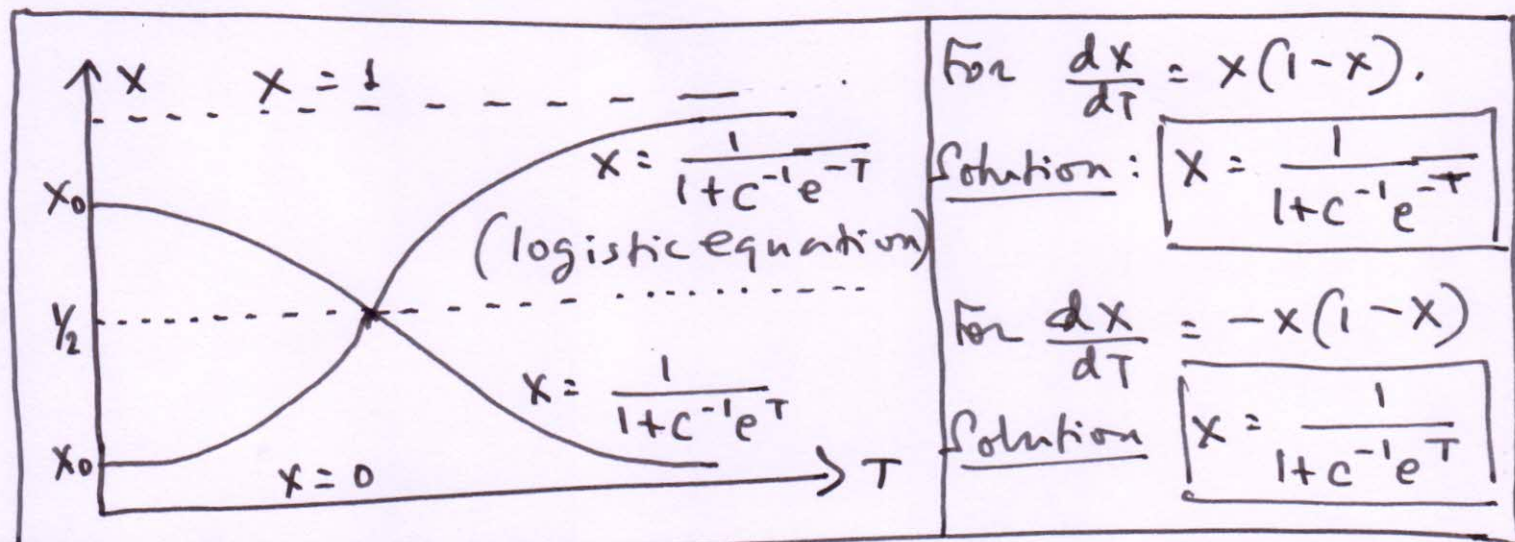 X X = 1
X₀
X = 1/(1+c⁻¹e⁻ᵀ)
(logistic equation)
1/2
X = 1/(1+c⁻¹eᵀ)
X₀
X = 0
T
For dX/dT = X(1-X).
Solution: X = 1/(1+c⁻¹e⁻ᵀ)
For dX/dT = -X(1-X)
Solution X = 1/(1+c⁻¹eᵀ)